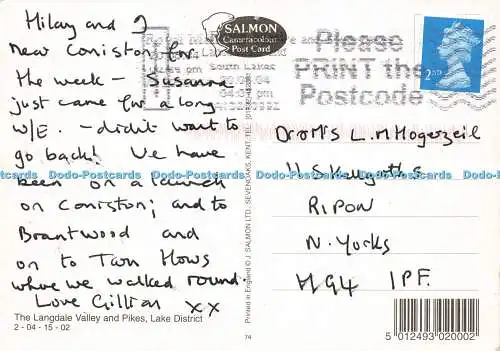 Hilary and I
near Coniston for
the week - Susanna
just came for a long
W/E. - didn't want to
go back! We have
been on a launch
on Coniston; and to
Brantwood and
on to Tarn Hows
where we walked round.
Love Gillian xx
The Langdale Valley and Pikes, Lake District
2 - 04 - 15 - 02
SALMON
Cameracolour
Post Card
Printed in England © J. SALMON LTD., SEVENOAKS, KENT. TEL:
74
Please
PRINT the
Postcode
2ND
Dr & Mrs L. M Hogerzeil
RIPON
N. Yorks
HG4 1PF.
5 012493 020002
Dodo-Postcards Dodo-Postcards Dodo-Postcards Dodo-Postcards